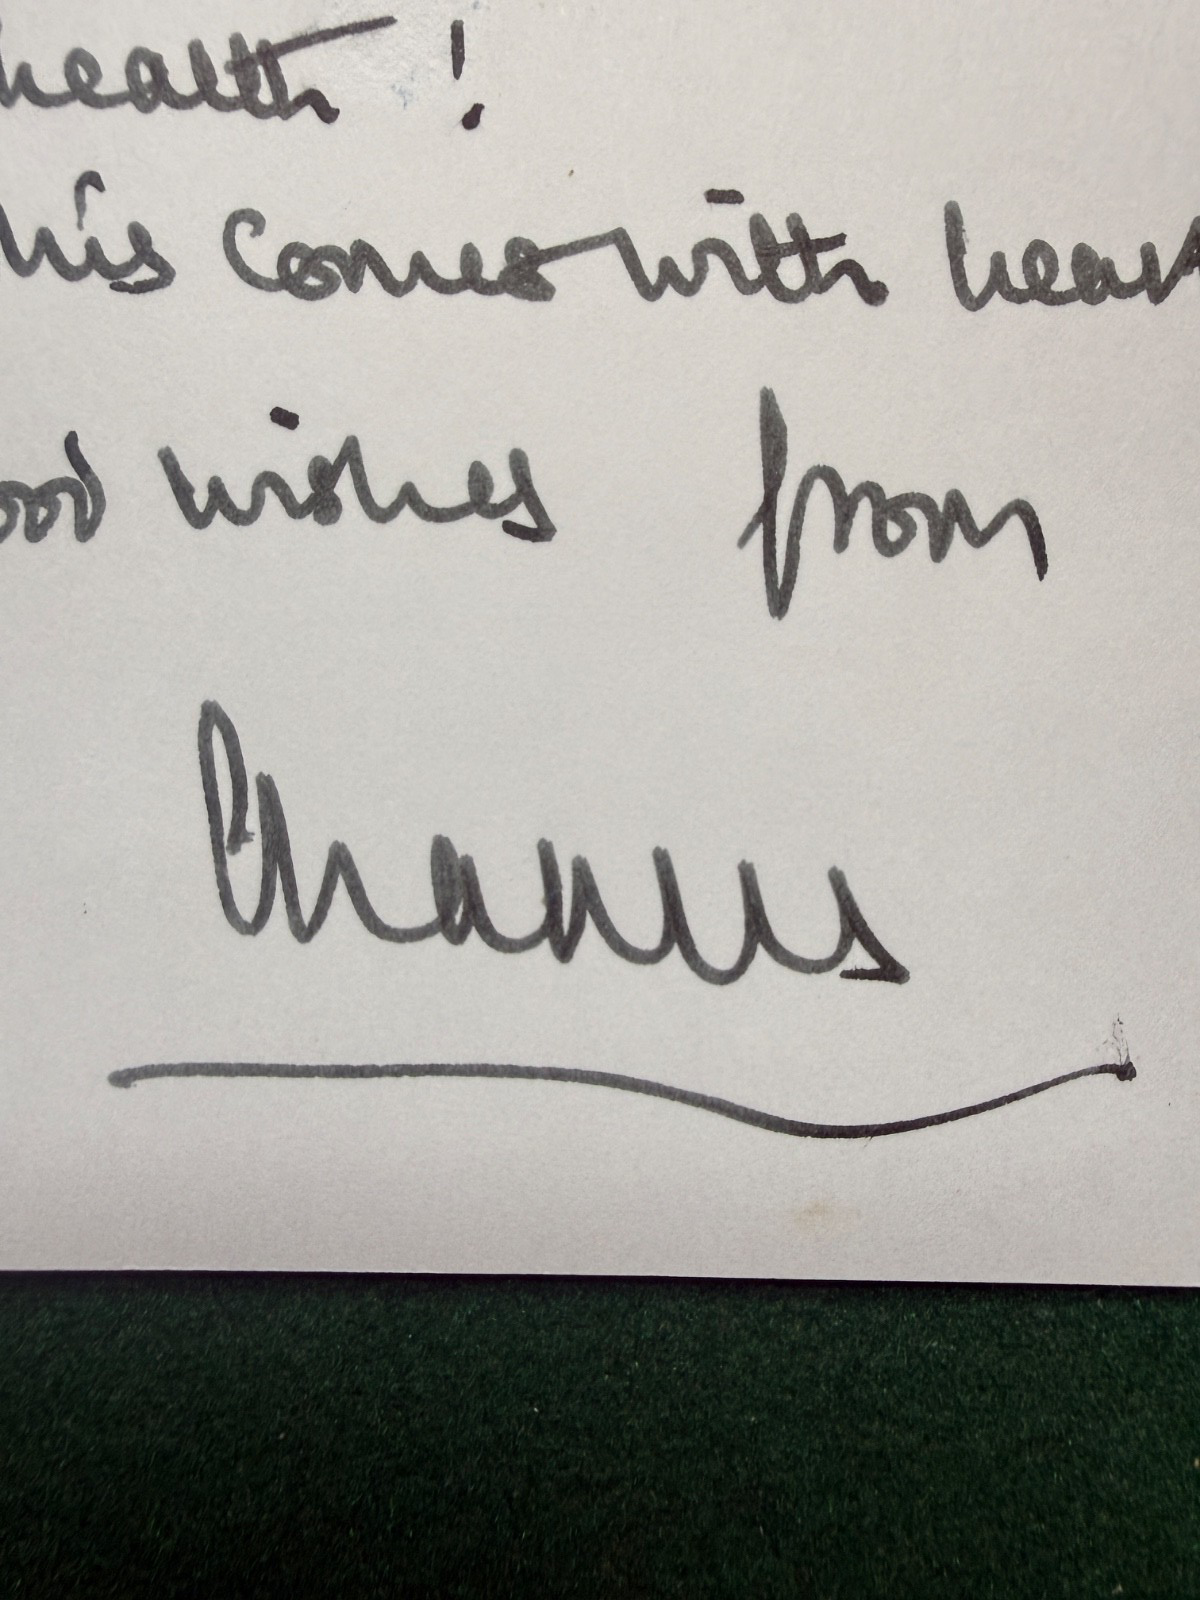 health !
his comes with heart
ood wishes from
Charles